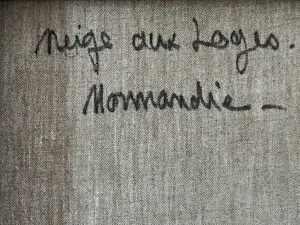 Neige aux Loges.
Normandie -